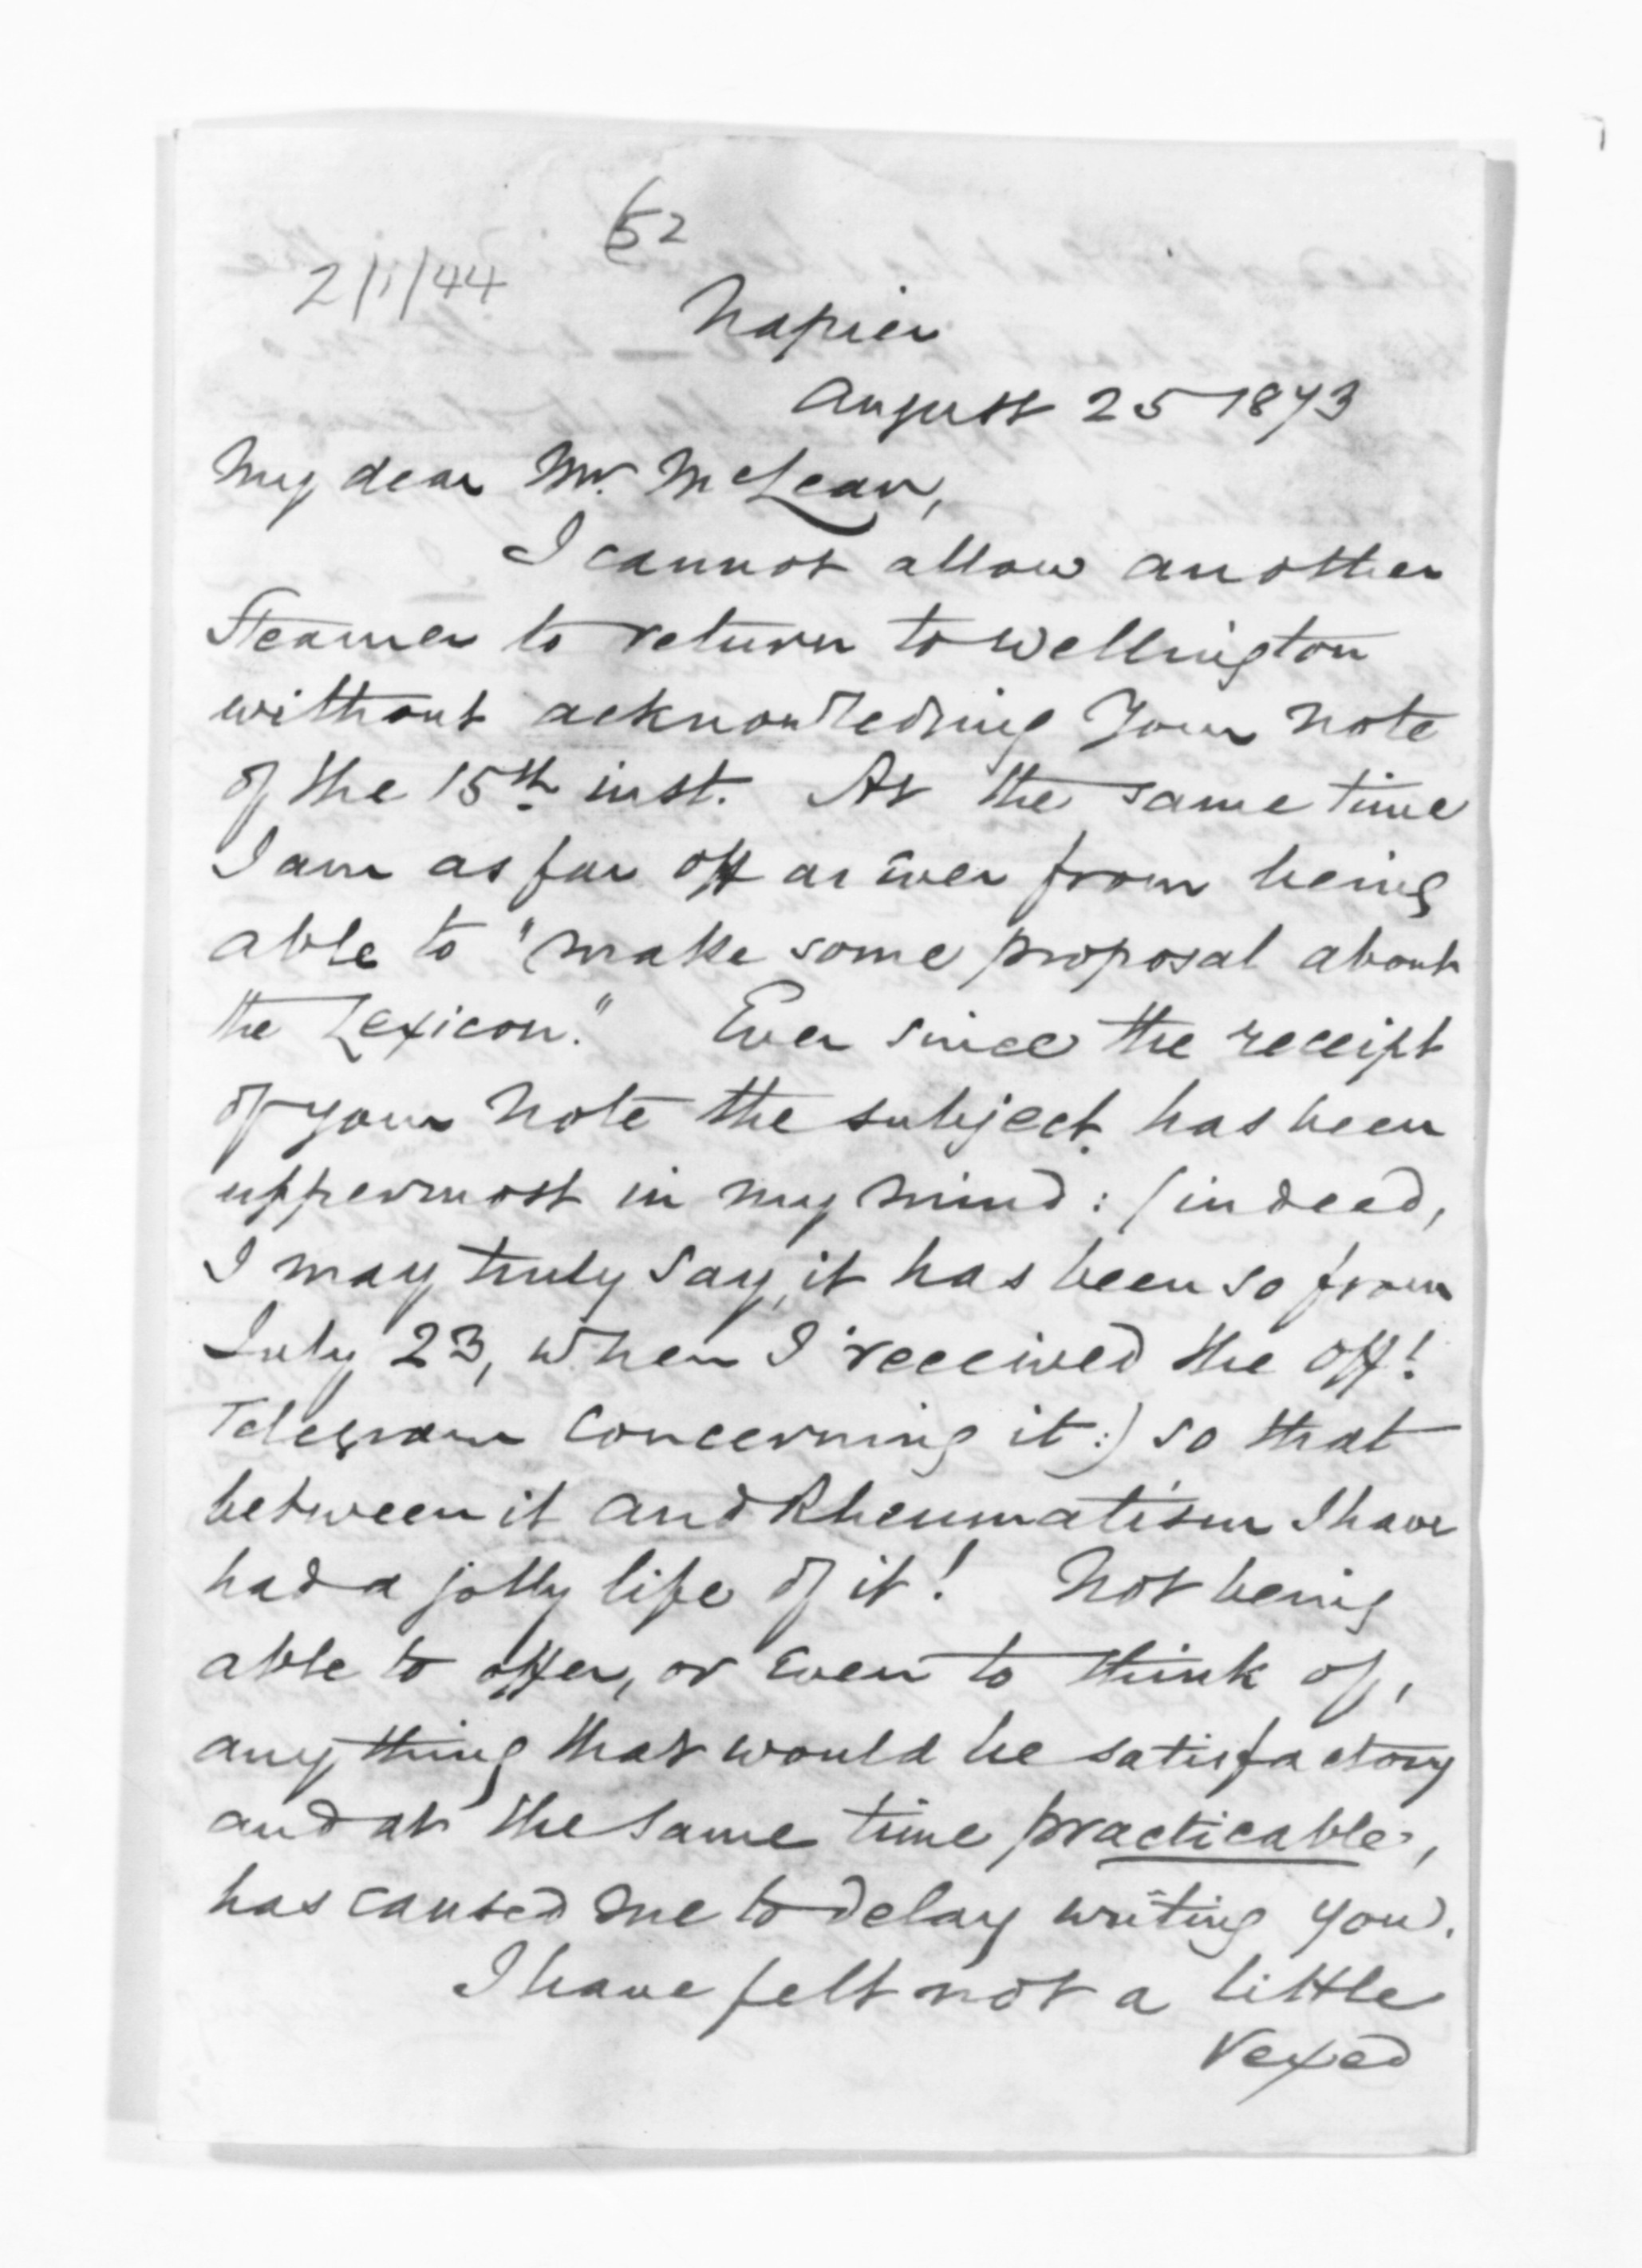 52
2/1/44
Napier
August 25 1873
My dear Mr. McLean,
I cannot allow another
Steamer to return to Wellington
without acknowledging your note
of the 15th inst. At the same time
I am as far off as ever from being
able to "make some proposal about
the Lexicon." Ever since the receipt
of your note the subject has been
uppermost in my mind: (indeed,
I may truly say, it has been so from
July 23, when I received the offl.
Telegram concerning it:) so that
between it and Rheumatism I have
had a jolly life of it! Not being
able to offer, or even to think of,
anything that would be satisfactory
and at the same time practicable,
has caused me to delay writing you.
I have felt not a little
vexed